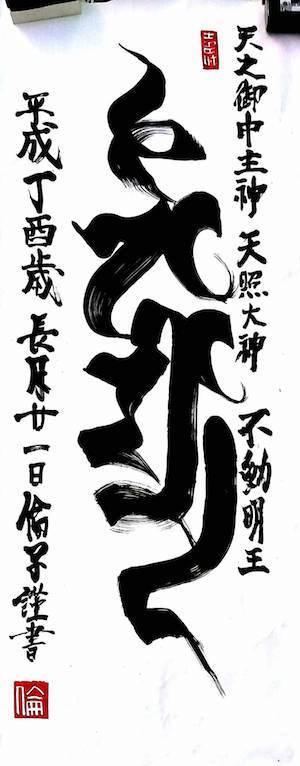 天之御中主神 天照大神 不動明王
平成丁酉歳 長月廿一日 倫子謹書
倫